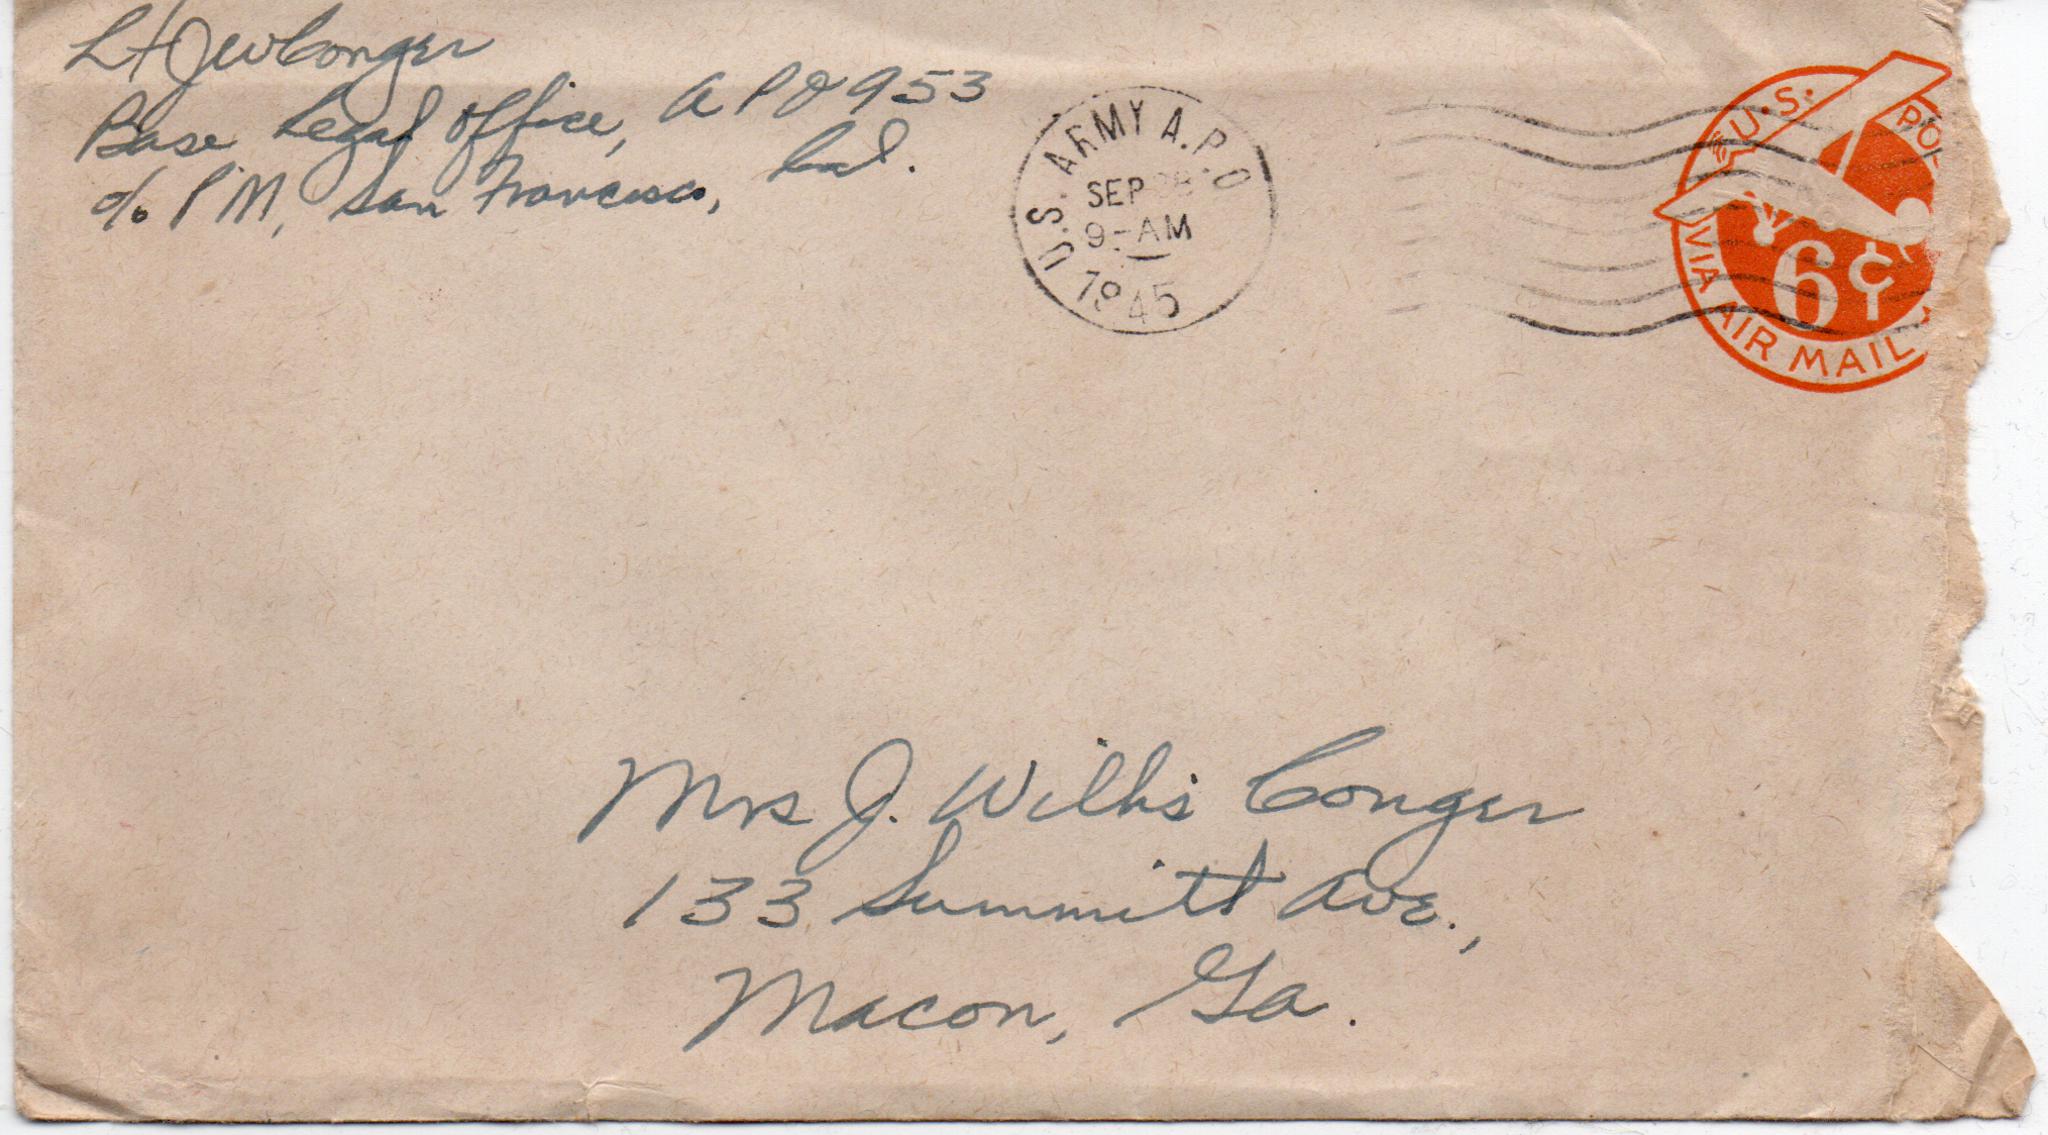 Lt JW Conger
Base Legal Office, APO 953
c/o PM, San Francisco, Cal.
U.S. ARMY A.P.O
SEP 28
9-AM
1945
U.S. PO
6¢
VIA AIR MAIL
Mrs J. Willis Conger
133 Summitt Ave.,
Macon, Ga.